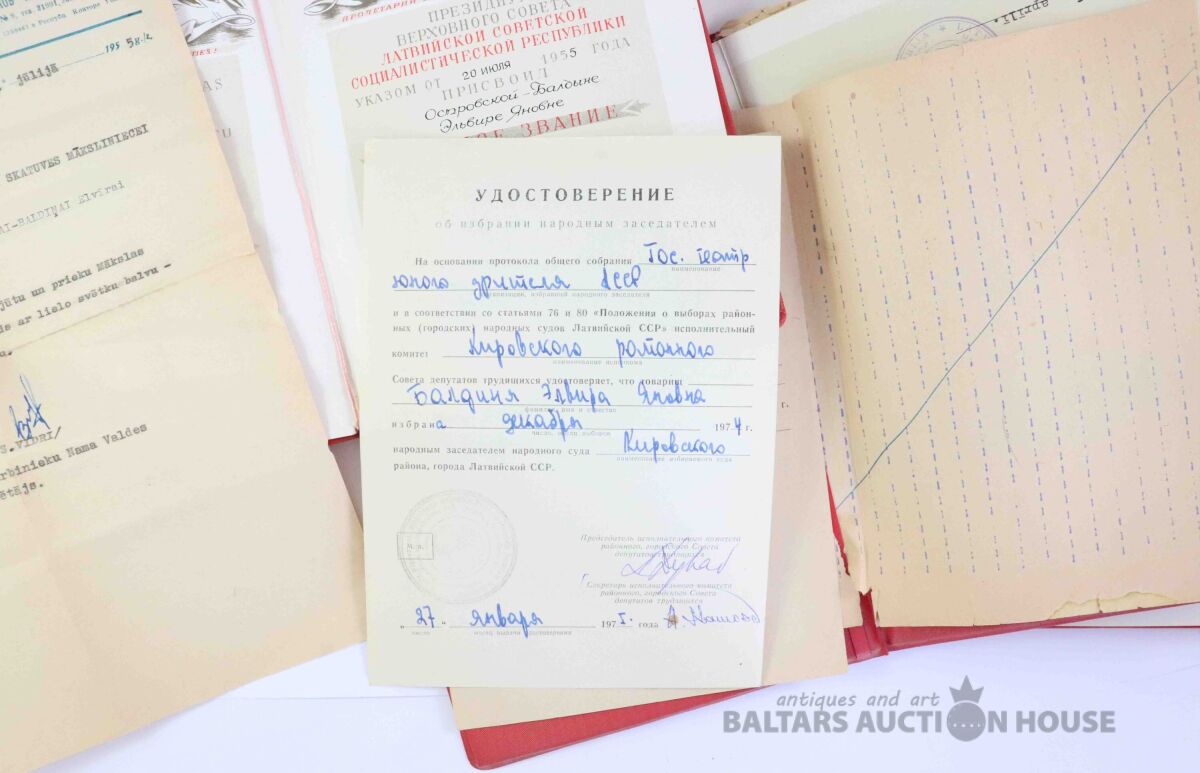 1955
jūlijā
SKATUVES MĀKSLINIECEI
BALDIŅAI Elvīrai
un prieku Mākslas
ar lielo svētku balvu -
Nama Valdes
ВЕРХОВНОГО СОВЕТА
ЛАТВИЙСКОЙ СОВЕТСКОЙ
СОЦИАЛИСТИЧЕСКОЙ РЕСПУБЛИКИ
УКАЗОМ ОТ 20 ИЮЛЯ 1955 ГОДА
ПРИСВОИЛ
Островской-Балдыне
Эльвире Яновне
ЗВАНИЕ
aprīlī.
УДОСТОВЕРЕНИЕ
об избрании народным заседателем
На основании протокола общего собрания Гос. театр
наименование
юного зрителя ЛССР
организации, избравшей народного заседателя
и в соответствии со статьями 76 и 80 «Положения о выборах район-
ных (городских) народных судов Латвийской ССР» исполнительный
комитет Кировского районного
наименование исполкома
Совета депутатов трудящихся удостоверяет, что товарищ
Балдиня Элвира Яновна
фамилия, имя и отчество
избрана декабря 1974 г.
число, месяц выборов
народным заседателем народного суда Кировского
наименование избираемого суда
района, города Латвийской ССР.
М. п.
Председатель исполнительного комитета
районного, городского Совета
депутатов трудящихся
Секретарь исполнительного комитета
районного, городского Совета
депутатов трудящихся
„27“ января 1975. года
число месяц выдачи удостоверения
г.
antiques and art
BALTARS AUCTION HOUSE